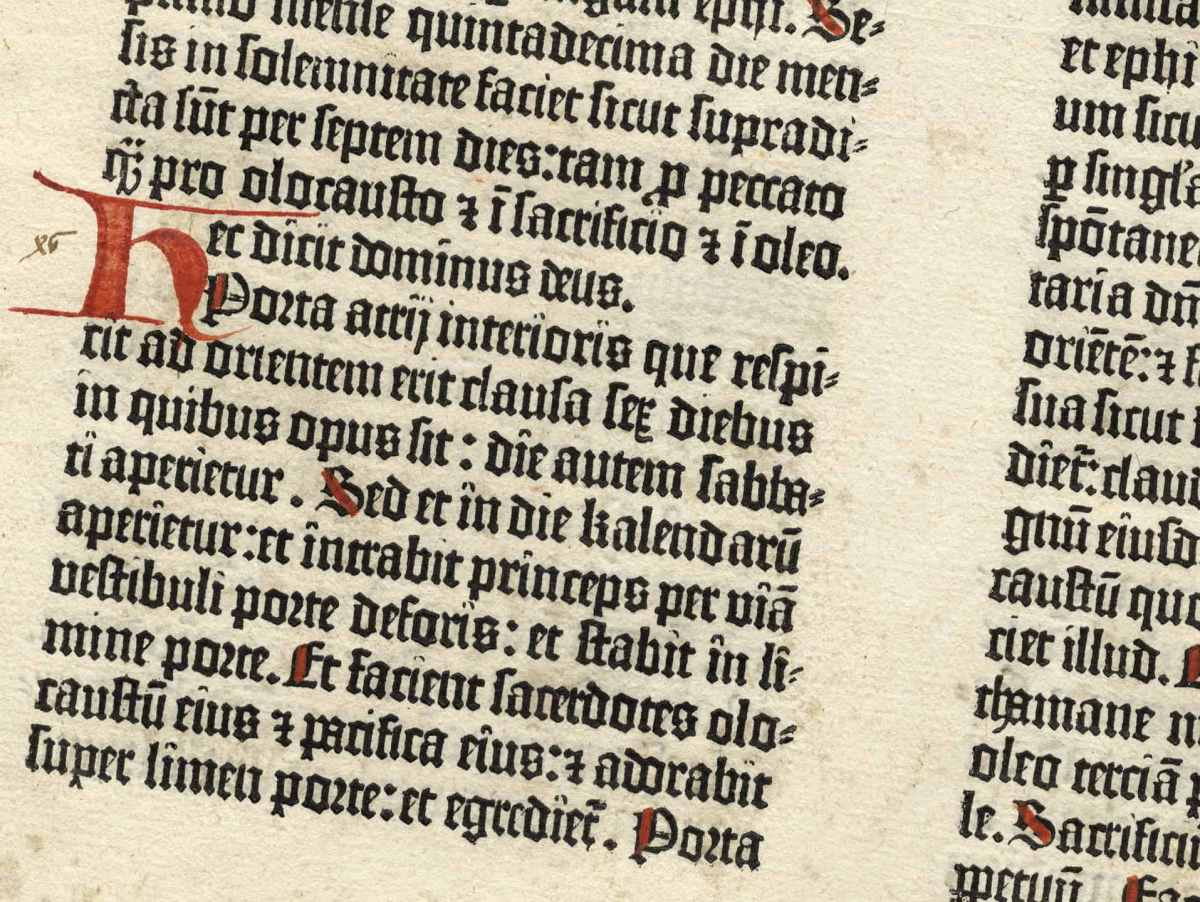 primo mense quintadecima die men⸗
sis in solemnitate faciet sicut supradi⸗
cta sūt per septem dies: tam ꝓ peccato
qꝫ pro olocausto ⁊ ī sacrificio ⁊ ī oleo.
Hec dicit dominus deus.
Porta atrij interioris que respi⸗
cit ad orientem erit clausa sex diebus
in quibus opus sit: die autem sabba⸗
ti aperietur. Sed et in die kalendarū
aperietur: et intrabit princeps per viā
vestibuli porte deforis: et stabit in li⸗
mine porte. Et facient sacerdotes olo⸗
caustū eius ⁊ pacifica eius: ⁊ adorabit
super limen porte: et egrediet̄. Porta
et ephi
um sicu
ꝑ singl'a
spōtane
taria dn̄
oriētē: ⁊
sua sicut
diet̄: clau
gnū eiusd
caustū qu
ciet illud.
oleo terciā
le. Sacrifici